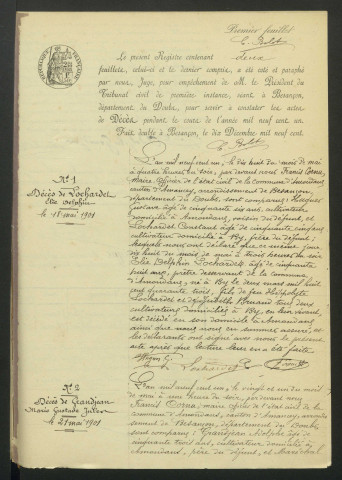 Premier feuillet
E. Bolot
deux
Le présent Registre contenant
feuillets, celui-ci et le dernier compris, a été coté et paraphé
par nous, Juge, pour empêchement de M. le Président du
Tribunal civil de première instance, séant à Besançon,
département du Doubs, pour servir à constater les actes
de Décès, pendant le cours de l'année mil neuf cent un.
Fait double à Besançon, le dix Décembre mil neuf cent.
E. Bolot
N° 1
Décès de Lochardet
Elie Delphin
le 18 mai 1901
L'an mil neuf cent un, le dix huit du mois de mai
à quatre heures du soir, par devant nous Francis Corne,
Maire officier de l'état civil de la commune d'Amondans
canton d'Amancey, arrondissement de Besançon,
département du Doubs, sont comparus:
Gustave âgé de cinquante six ans, cultivateur
domicilié à Amondans, voisin du défunt, et
Lochardet âgé de cinquante cinq ans
cultivateur domicilié à By, frère du défunt;
lesquels nous ont déclaré que ce même jour
dix huit du mois de mai à trois heures du soir
Elie Delphin Lochardet âgé de cinquante
huit ans, prêtre desservant de la commune
d'Amondans, né à By le deux mars mil huit
cent quarante trois, fils de feu Hippolyte
Lochardet et de Judith tous deux
cultivateurs domiciliés à By, en leur vivant,
est décédé en son domicile à Amondans
ainsi que nous nous en sommes assuré, et
les déclarants ont signé avec nous le présent
acte après que lecture leur en a été faite
Lochardet
N° 2
Décès de Grandjean
Marie Gustave Jules
le 21 mai 1901
L'an mil neuf cent un, le vingt et un du mois
de mai à une heure du soir, par devant nous
Francis Corne, maire officier de l'état civil de la
commune d'Amondans, canton d'Amancey, arrondis
sement de Besançon, département du Doubs
sont comparus: Grandjean Adolphe âgé de
cinquante trois ans, cultivateur domicilié à
Amondans, père du défunt, et Maréchal